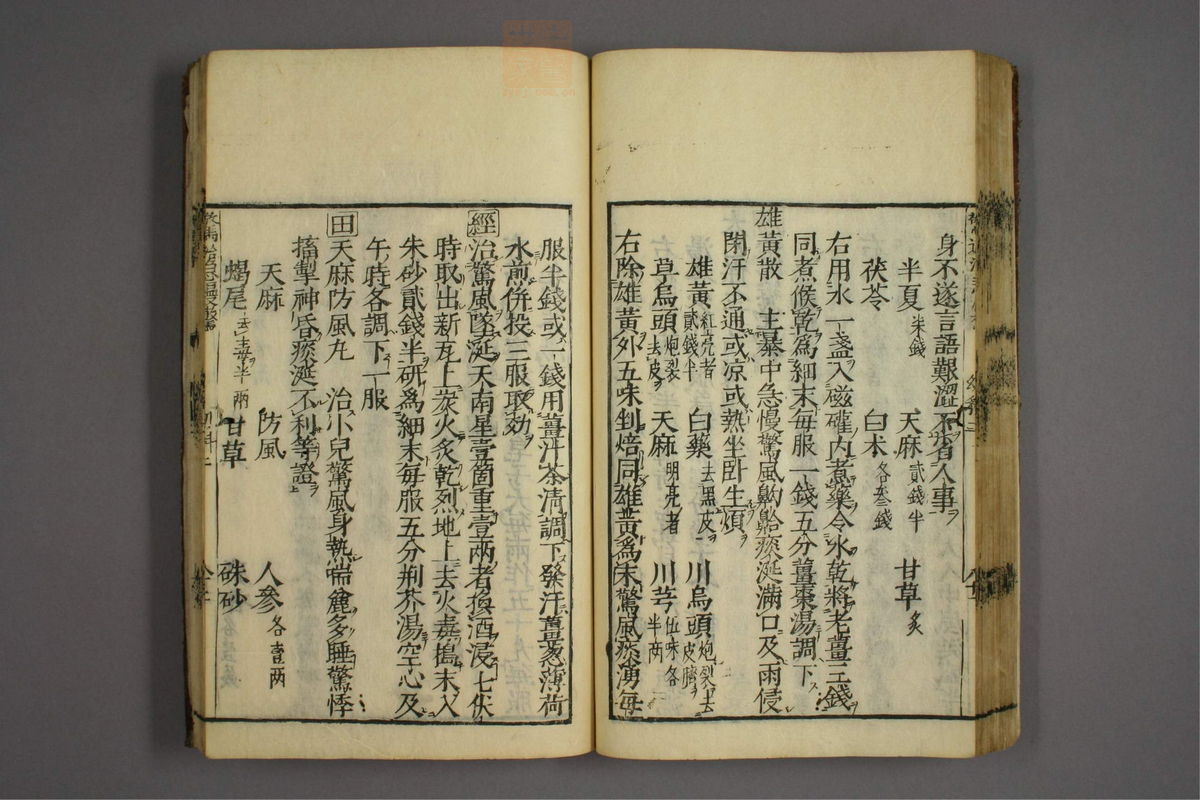 身不遂言語艱澀不省人事
半夏朱錢 天麻貳錢半 甘草炙
茯苓 白朮各叁錢
右用水一盞入磁礶内煮藥令水乾將老薑三錢
同煮候乾為細末每服一錢五分薑棗湯調下
雄黃散 主暴中急慢驚風齁䶎痰涎滿口及雨侵
閉汗不通或凉或熱坐卧生煩
雄黃紅亮者貳錢半 白藥去黑皮 川烏頭炮裂去皮臍
草烏頭炮裂去皮 天麻明亮者 川芎伍味各半兩
右除雄黃外五味剉焙同雄黃為末驚風痰湧每
服半錢或一錢用薑汁茶清調下發汗薑葱薄荷
水煎併投三服取効
經 治驚風墜涎天南星壹箇重壹兩者換酒浸七伏
時取出新瓦上炭火炙乾烈地上去火毒搗末入
朱砂貳錢半研為細末每服五分荆芥湯空心及
午時各調下一服
田 天麻防風丸 治小兒驚風身熱喘麄多睡驚悸
搐掣神昏痰涎不利等證
天麻 防風 人參各壹兩
蝎尾去毒半兩 甘草 硃砂